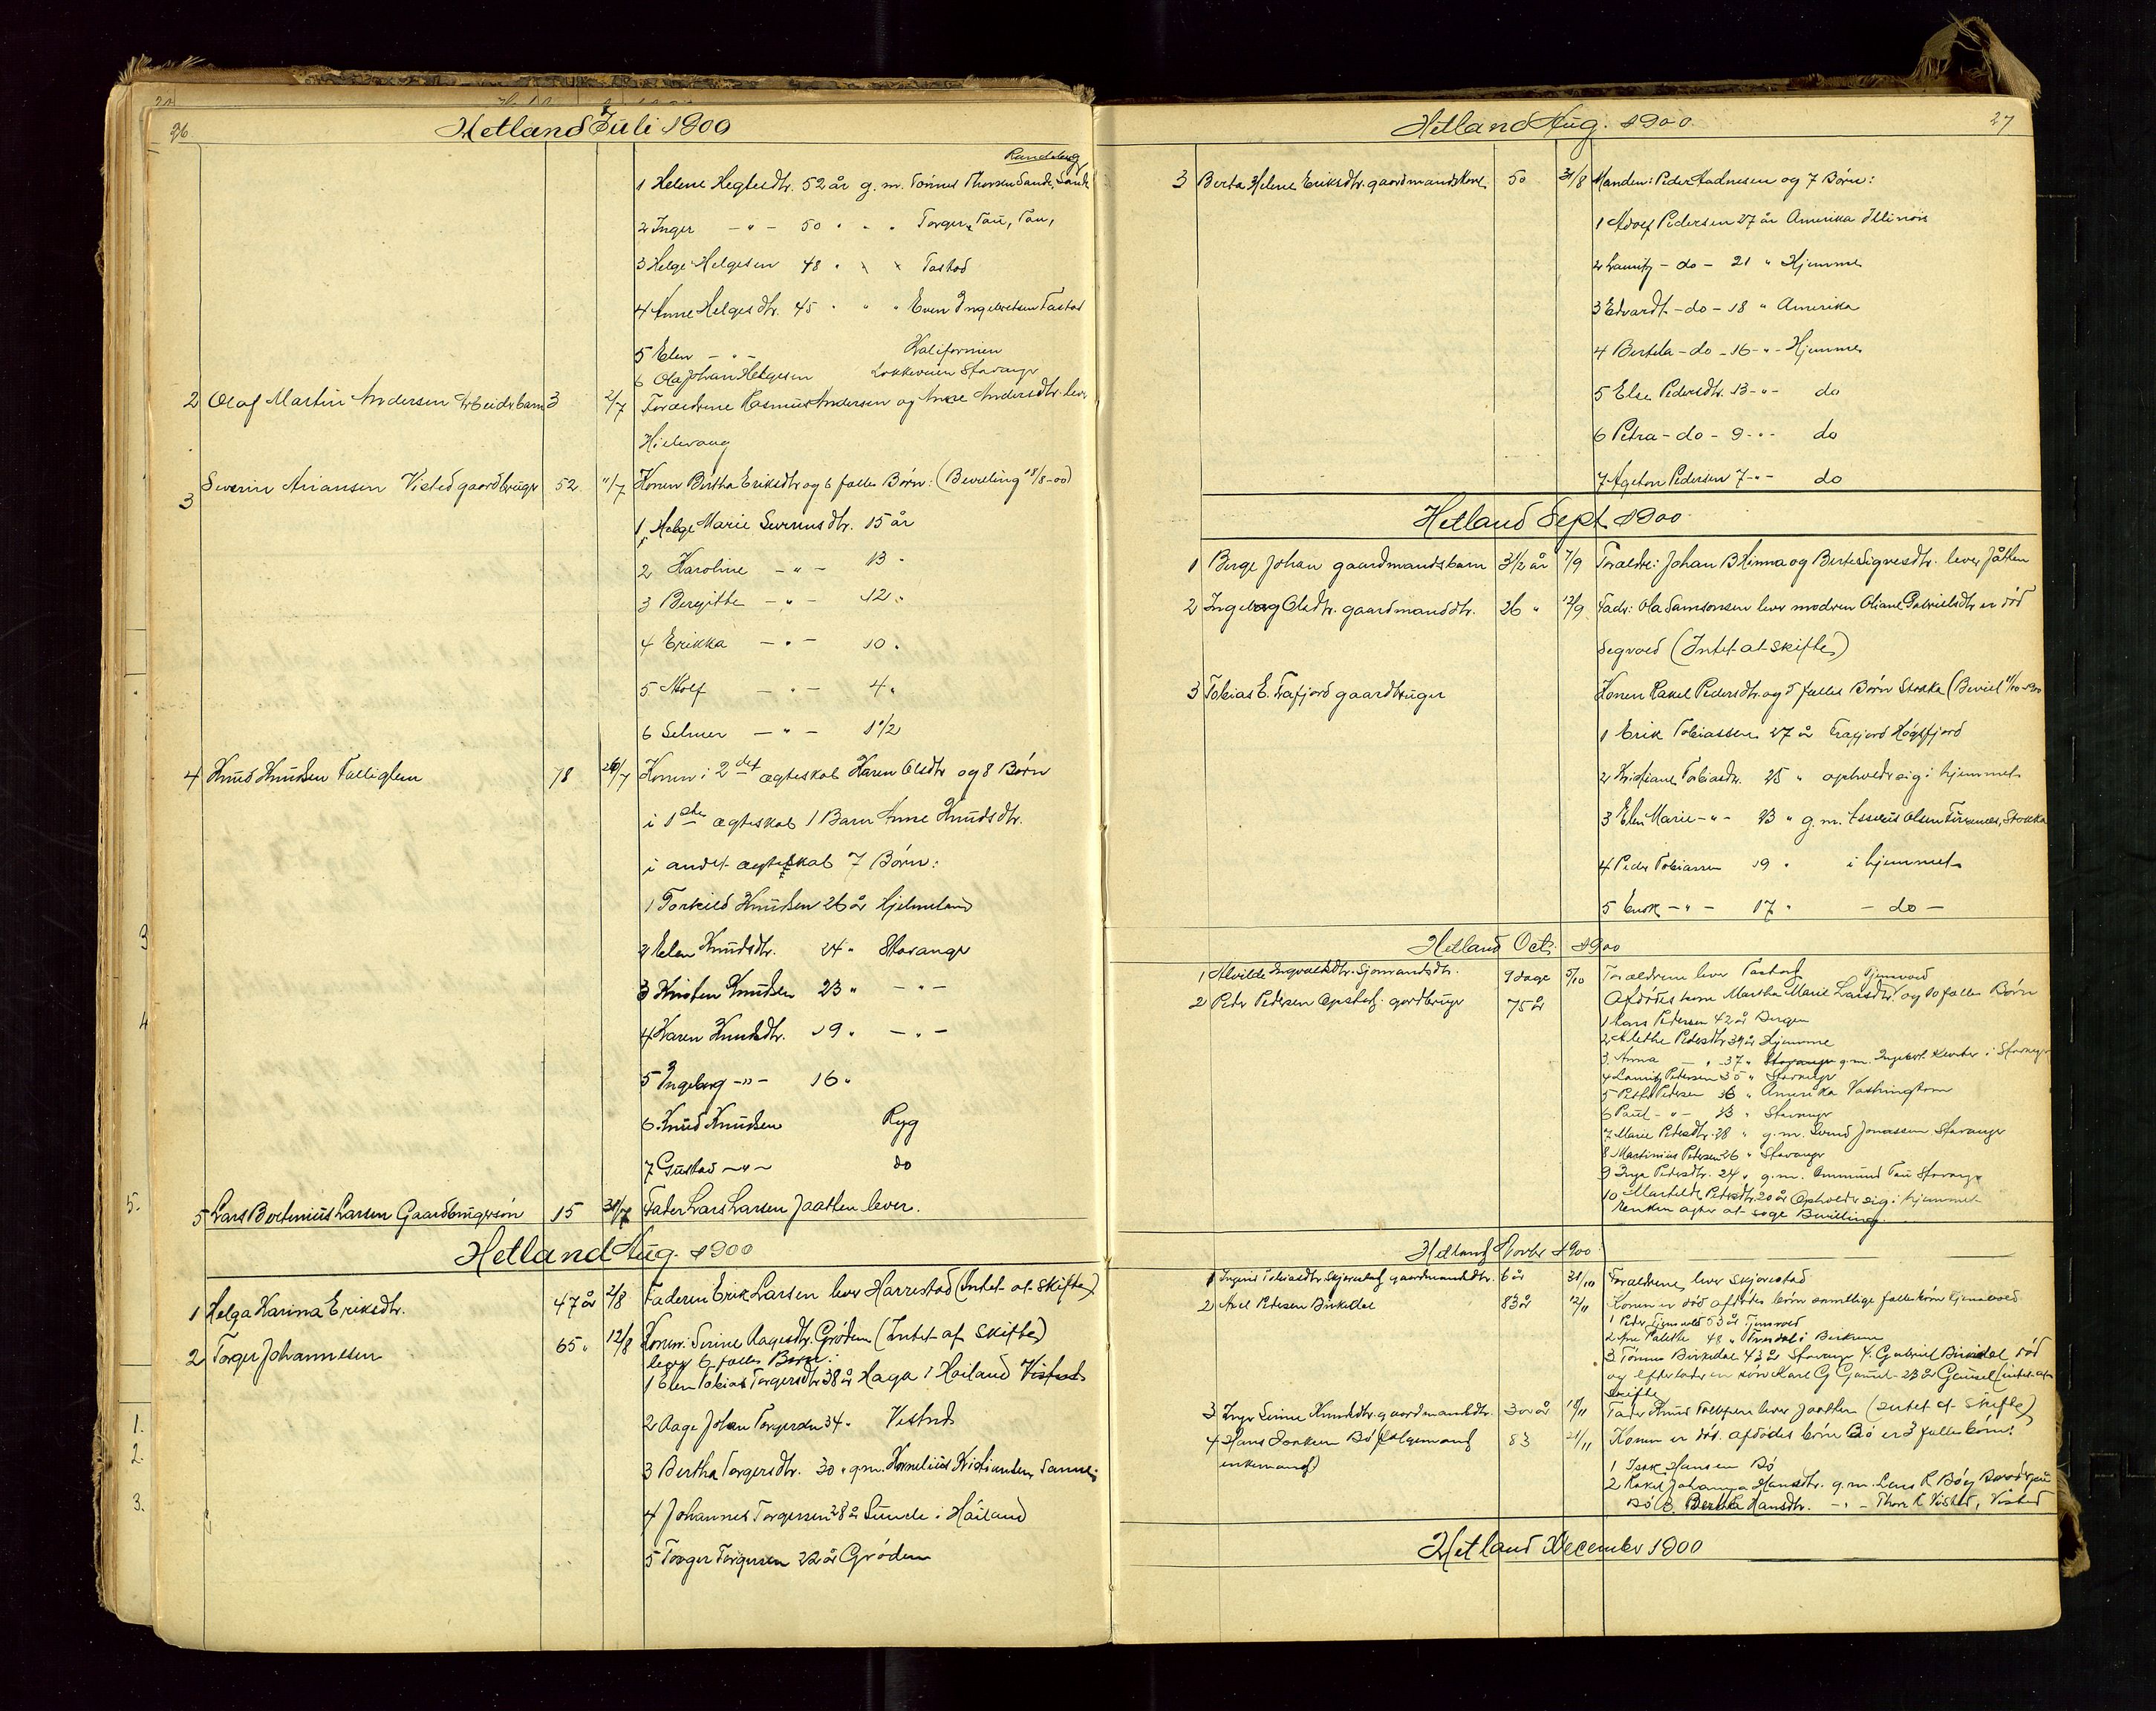 26
Hetland Juli 1900
Randaberg
1 Helene Helgesdtr. 52 år g.m. Tönnes Thorsen Sande, Sande
2 Inger - " - 50 " " " Torger Tau, Tau,
3 Helge Helgesen 48 " Tastad
4 Anne Helgesdtr. 45 " " " Even Ingebretsen Tastad
5 Elen - " - Kalifornien
6 Ola Johan Helgesen Lokkeveien Stavanger
2 Olaf Martin Andersen Arbeidsbarn 3 2/7 Foraldrene Rasmus Andersen og Anne Andersdtr. lever
Hillevaag
3 Severin Ariansen Visted gaardbruger 52 11/7 Konen Bertha Eriksdtr og 6 falles Börn: (Bevilling 18/8-00)
1 Helge Marie Severinsdtr. 15 år
2 Karoline - " - 13 "
3 Bergitte - " - 12 "
4 Erikka - " - 10 "
5 Adolf - " - 4 "
6 Selmer - " - 1 1/2
4 Knud Knudsen 78 26/7 Konen i 2det ægteskab Karen Olsdtr og 8 Börn
i 1ste ægteskab 1 Barn Anne Knudsdtr.
i andet ægteskab 7 Börn:
1 Torkild Knudsen 26 år Hjelmeland
2 Elen Knudsdtr. 24 " Stavanger
3 Kristen Knudsen 23 " - " -
4 Karen Knudsdtr. 19 " - " -
5 Ingeborg - " - 16 "
6 Knud Knudsen Ryg
7 Gustav - " - do
5 Lars Bertinius Larsen Gaardbrugersön 15 31/7 Fader Lars Larsen Jaatten lever.
Hetland Aug. 1900
1 Helga Karina Eriksdtr. 47 år 2/8 Faderen Erik Larsen lever Harrestad (Intet at Skifte)
2 Torger Johannesen 65 " 12/8 Konen: Serine Aagesdtr. Gröden (Intet at skifte)
lever 6 falles Börn:
1 Elen Tobias Torgersdtr 38 år Haga i Haaland
2 Aage Johan Torgersen 34 " Visted
3 Bertha Torgersdtr. 30 " g.m. Kornelius Kristiansen,
4 Johannes Torgersen 28 år Sunde i Håland
5 Torger Torgersen 22 år Gröden
27
Hetland Aug. 1900
3 Berta Helene Eriksdtr. gaardmandskone 50 31/8 Manden: Peder Aadnesen og 7 Börn:
1 Adolf Pedersen 27 år Amerika Illinois
2 Lauritz - do - 21 " Hjemme
3 Edvardt - do - 18 " Amerika
4 Bertila - do - 16 - " - Hjemme
5 Else Pedersdtr. 13 - " - do
6 Petra - do - 9 - " - do
7 Ageton Pedersen 7 - " - do
Hetland Sept 1900
1 Berge Johan gaardmandsbarn 3 1/2 år 7/9 Foraldre: Johan B Hinna og Berte Sigvesdtr. lever Jåtten
2 Ingeborg Olsdtr. gaardmanddtr. 26 " 12/9 Fader: Ola Samsonsen lever modren Oliane Gabrielsdtr er död
(Intet at skifte)
3 Tobias E. Frafjord gaardbruger Konen Rakel Pedersdtr. og 5 falles Börn Stokka
1 Erik Tobiassen 27 år Frafjord Högsfjord
2 Kristiane Tobiasdtr. 25 " opholder sig i hjemmet
3 Elen Marie - " - 23 " g.m. Asserus Olsen, Stokka
4 Peder Tobiassen 19 " i hjemmet
5 - " - 17 " - do -
Hetland Octb. 1900
1 Alvilde Ingvaldsdtr. Sjömandsdtr. 9 dage 5/10 Foraldrene lever Tastad
Tjensvold
2 Peder Pedersen gardbruger 75 år Afdödes kone Martha Marie Larsdtr. og 10 falles Börn
1 Lars Pedersen 42 år Bergen
2 Alethe Pedersdtr 39 år Hjemme
3 Anna - " - 37 " Stavanger g.m. i Stavanger
4 Lauritz Pedersen 35 " Stavanger
5 Pedersen 36 " Amerika Vashington
6 Paul - " - 23 " Stavanger
7 Marie Pedersdtr. 28 " g.m. Svend Jonassen Stavanger
8 Martinius Pedersen 26 " Stavanger
9 Inga Pedersdtr. 24 " g.m. Ommund Tau Stavanger
10 Mathilde Pedersdtr. 20 år Opholder sig i hjemmet
Enken agter at söge Bevilling.
Hetland Novbr 1900.
1 Tobiasdtr. Skjævestad gaardmandsdtr. 6 år 31/10 Foraldrene lever Skjævestad
2 Axel Pedersen Birkedal 83 år 12/11 Konen er död afdödes börn samtlige fallesbörn Tjensvold
1 Peder Tjensvold 53 år Tjensvold
2 Ane Malethe 48 "
3 Tönnes Birkedal 43 år Stavanger 4. Gabriel Birkedal död
og efterlader en sön Karl G 23 år Gausel (intet at
skifte)
3 Inger Serine Knudsdtr. gaardmandsdtr. 30 år 18/11 Fader Knud lever Jaatten (Intet at Skifte)
4 Hans Bö 83 21/11 Konen er död. afdödes börn Bö er 3 fallesbörn:
enkemand)
1 Isak Hansen Bö
2 Rakel Johanna Hansdtr. g.m. Lars R Böe
Bö 3. Bertha Hansdtr. - " - Thore R Visted, Visted
Hetland December 1900